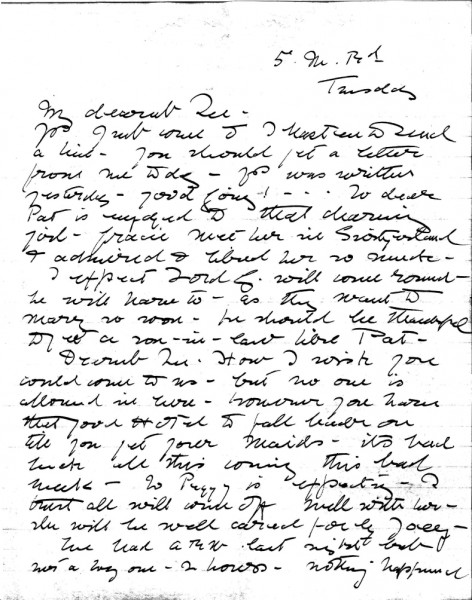 5. M. Rd
Tuesday
My dearest
Just come to I hasten to send
a line - you should get a letter
from me today - was written
yesterday - good going! - - - So dear
Pat is engaged to that charming
girl - Gracie met her in Switzerland
& admired & liked her so much -
I expect Lord G. will come round -
he will have to - as they want to
marry so soon - he should be thankful
to get a son-in-law like Pat -
Dearest How I wish you
could come to us - but no one is
allowed in here - however you have
that good Hotel to fall back on
till you get your maids - its bad
luck all this coming this bad
week - So Peggy is expecting - I
trust all will come off well with her -
She will be well cared for by
We had a last night but
not a long one - 2 hours - nothing happened